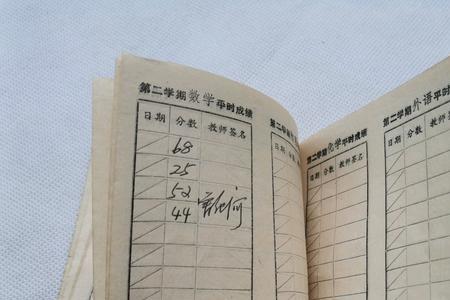 第二学期数学平时成绩
日期 分数 教师签名
68
25
52
44
第二学期
日期
第二学期化学平时成绩
日期 分数 教师签名
第二学期外语平时
日期 分数